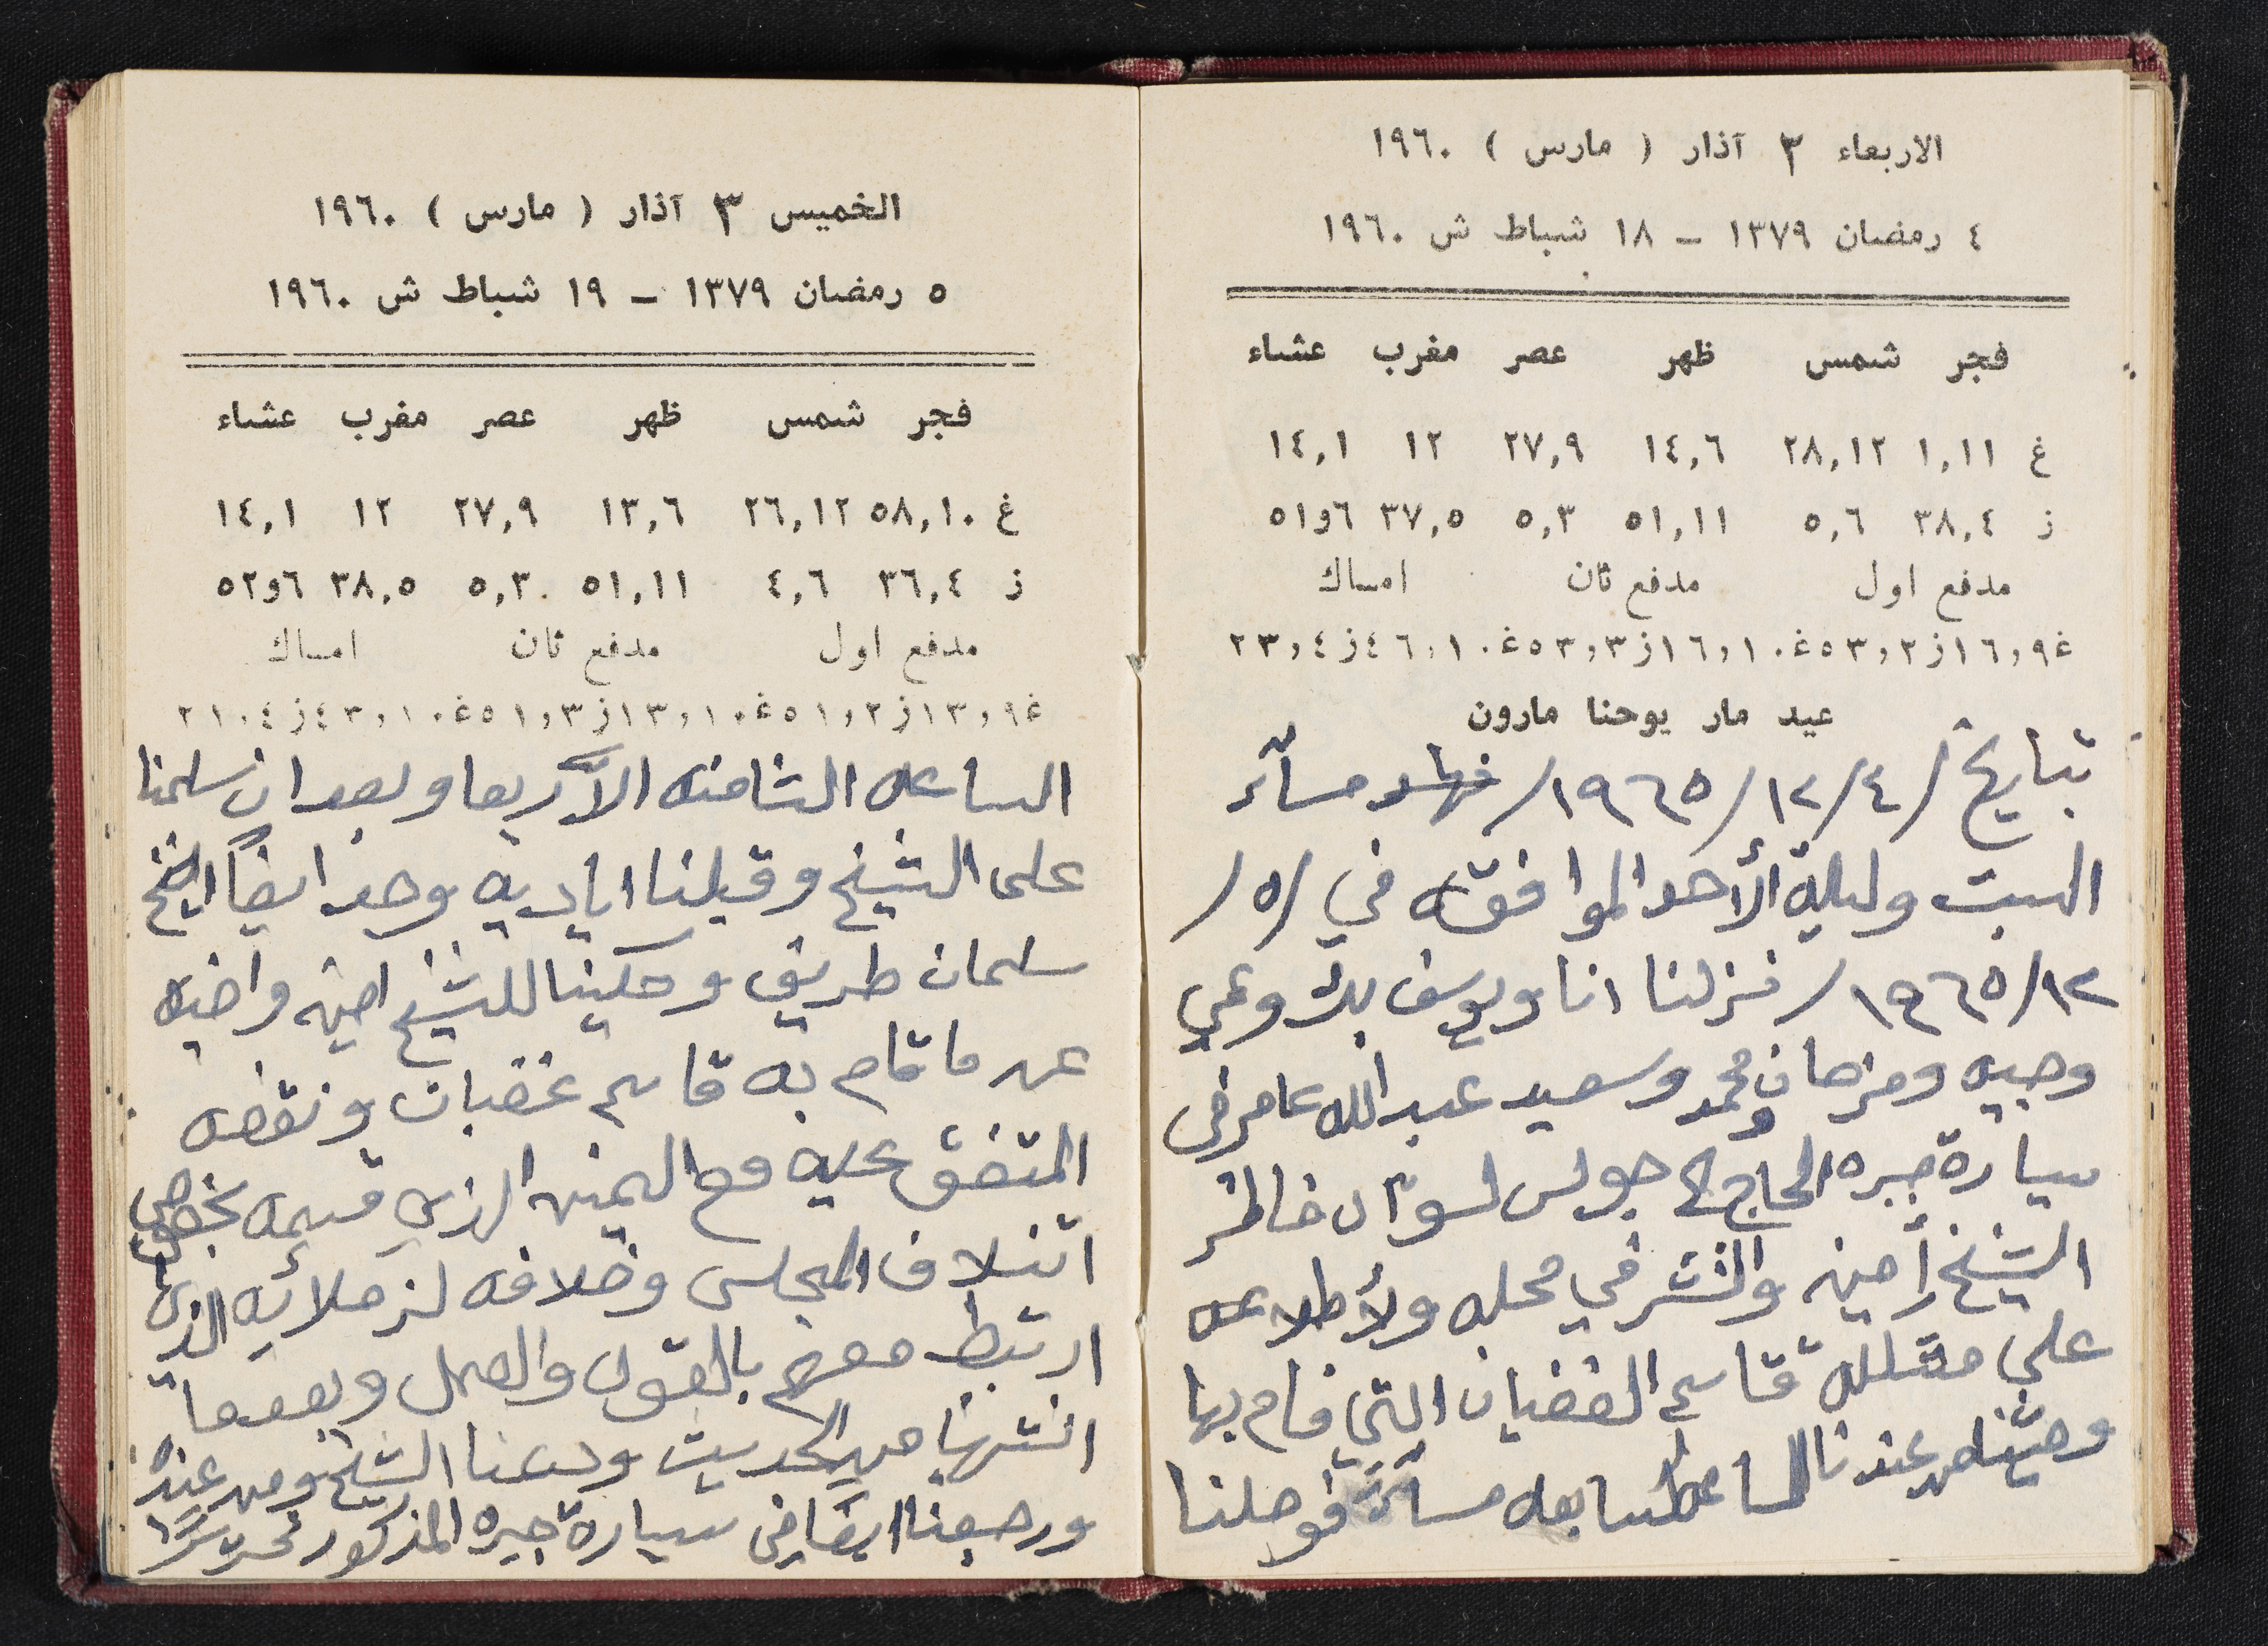 الاربعاء ٢ آذار ( مارس ) ١٩٦٠
٤ رمضان ١٣٧٩ – ١٨ شباط ش ١٩٦٠
فجر شمس ظهر عصر مغرب عشاء
غ ١,١١ ٢٨,١٢ ١٤,٦ ٢٧,٩ ١٢ ١٤,١
ز ٣٨,٤ ٥,٦ ٥١,١١ ٥,٣ ٣٧,٥ ٦و٥١
مدفع اول مدفع ثان امساك
غ١٦,٩ز٥٣,٢غ١٦,١٠ز٥٣,٣غ٤٦,١٠ز٢٣,٤
عيد مار يوحنا مارون
بتاريخ /١٩٦٥/١٢/٤/ مسآئر
السبت وليلة الأحد الموافقه في /٥/
١٩٦٥/١٢/ نزلنا انا ويوسف بك وعمي
وجيه ومزهان ومحمد وسعيد عبدالله عامر في
سيارة جبره الحاج لـ جولس لسؤال خاطر
الشيخ أمين والنشر في محله ولأطلاعه
على قاسم الغضبان التي قام بها
من عندنا الساعه السابعه مساءً فوصلنا
الخميس ٣ آذار ( مارس ) ١٩٦٠
٥ رمضان ١٣٧٩ – ١٩ شباط ش ١٩٦٠
فجر شمس ظهر عصر مغرب عشاء
غ ٥٨,١٠ ٢٦,١٢ ١٣,٦ ٢٧,٩ ١٢ ١٤,١
ز ٣٦,٤ ٤,٦ ٥١,١١ ٥,٣ ٣٨,٥ ٦و٥٢
مدفع اول مدفع ثان امساك
غ١٣,٩ز٥١,٢غ١٣,١٠ز٥١,٣غ٤٣,١٠ز٢١,٤
الساعه الثامنه الآربعا وبعد ان سلمنا
على الشيخ وقبلنا اياديه وجد ايضاً الشيخ
سلمان طريف وحكينا للشيخ امين واخيه
عن ما قام به قاسم غضبان ونقضه
المتفق عليه مع اليمين الذي قسمه بخصوص
ائتلاف المجلس وخلافه لزملائه الذي
ارتبط معهم بالقول والعمل وبعدما
انتهينا من الحديث ودعنا الشيخ ومن عنده
ورجعنا ايضا في سيارة جبره المذكور